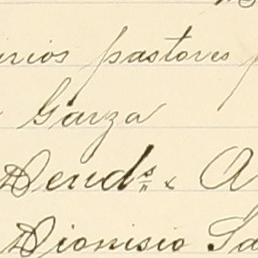 pastores
Garza
Dend^s x A
Dionisio Sa